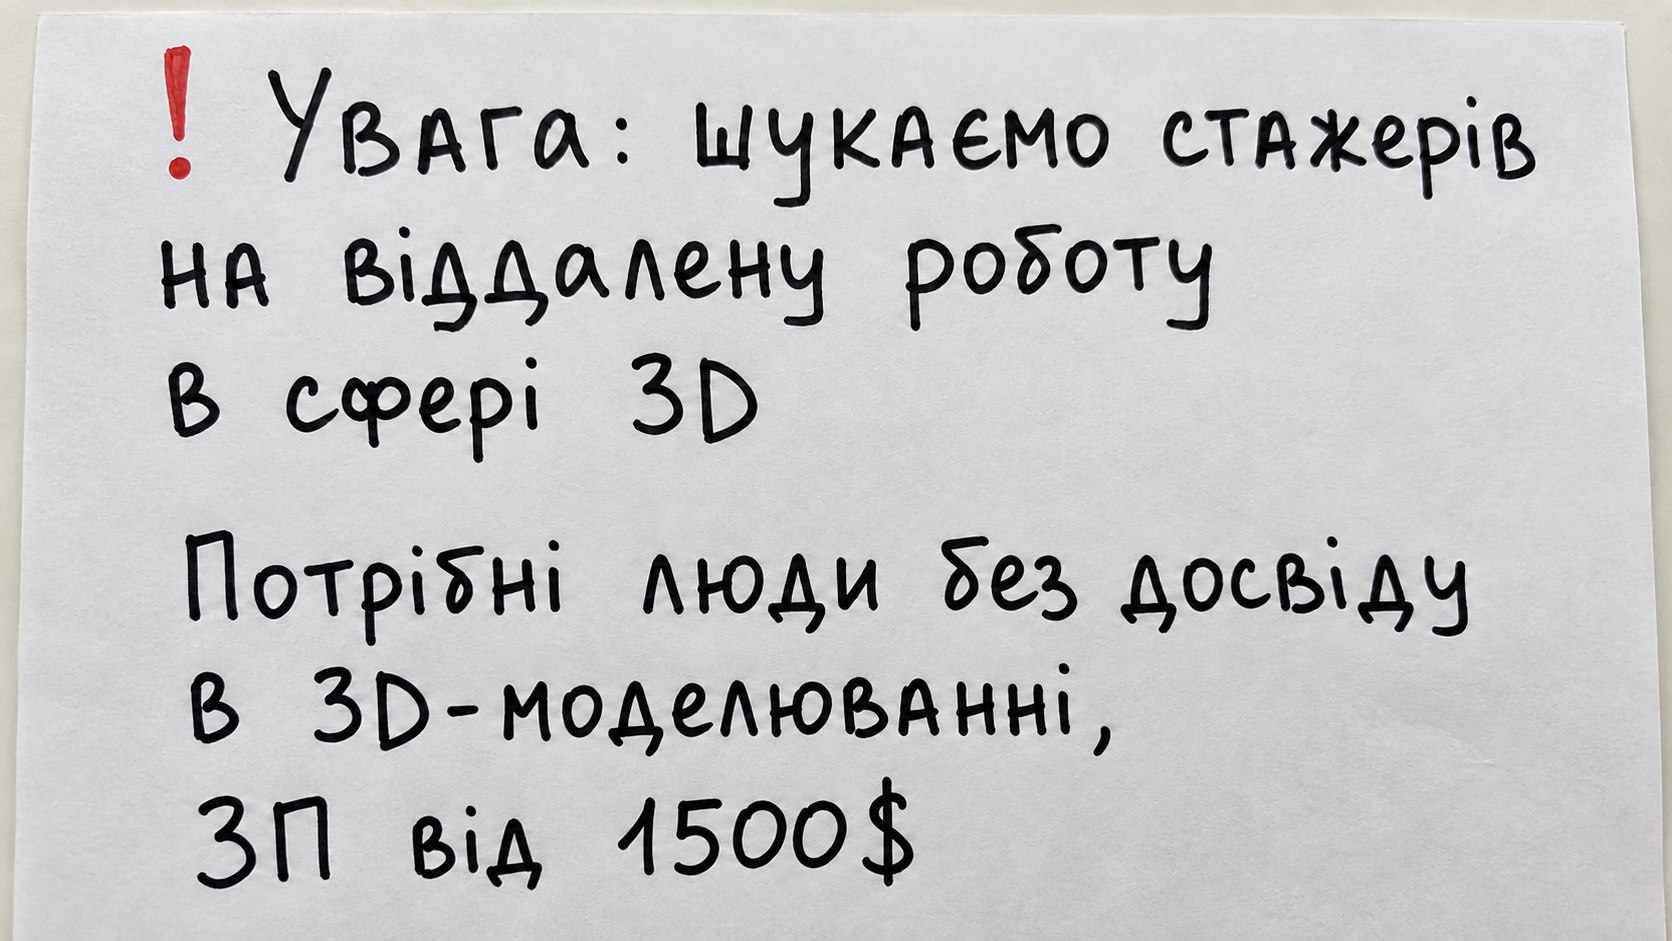 ❗ Увага: шукаємо стажерів
на віддалену роботу
в сфері 3D
Потрібні люди без досвіду
в 3D-моделюванні,
ЗП від 1500$